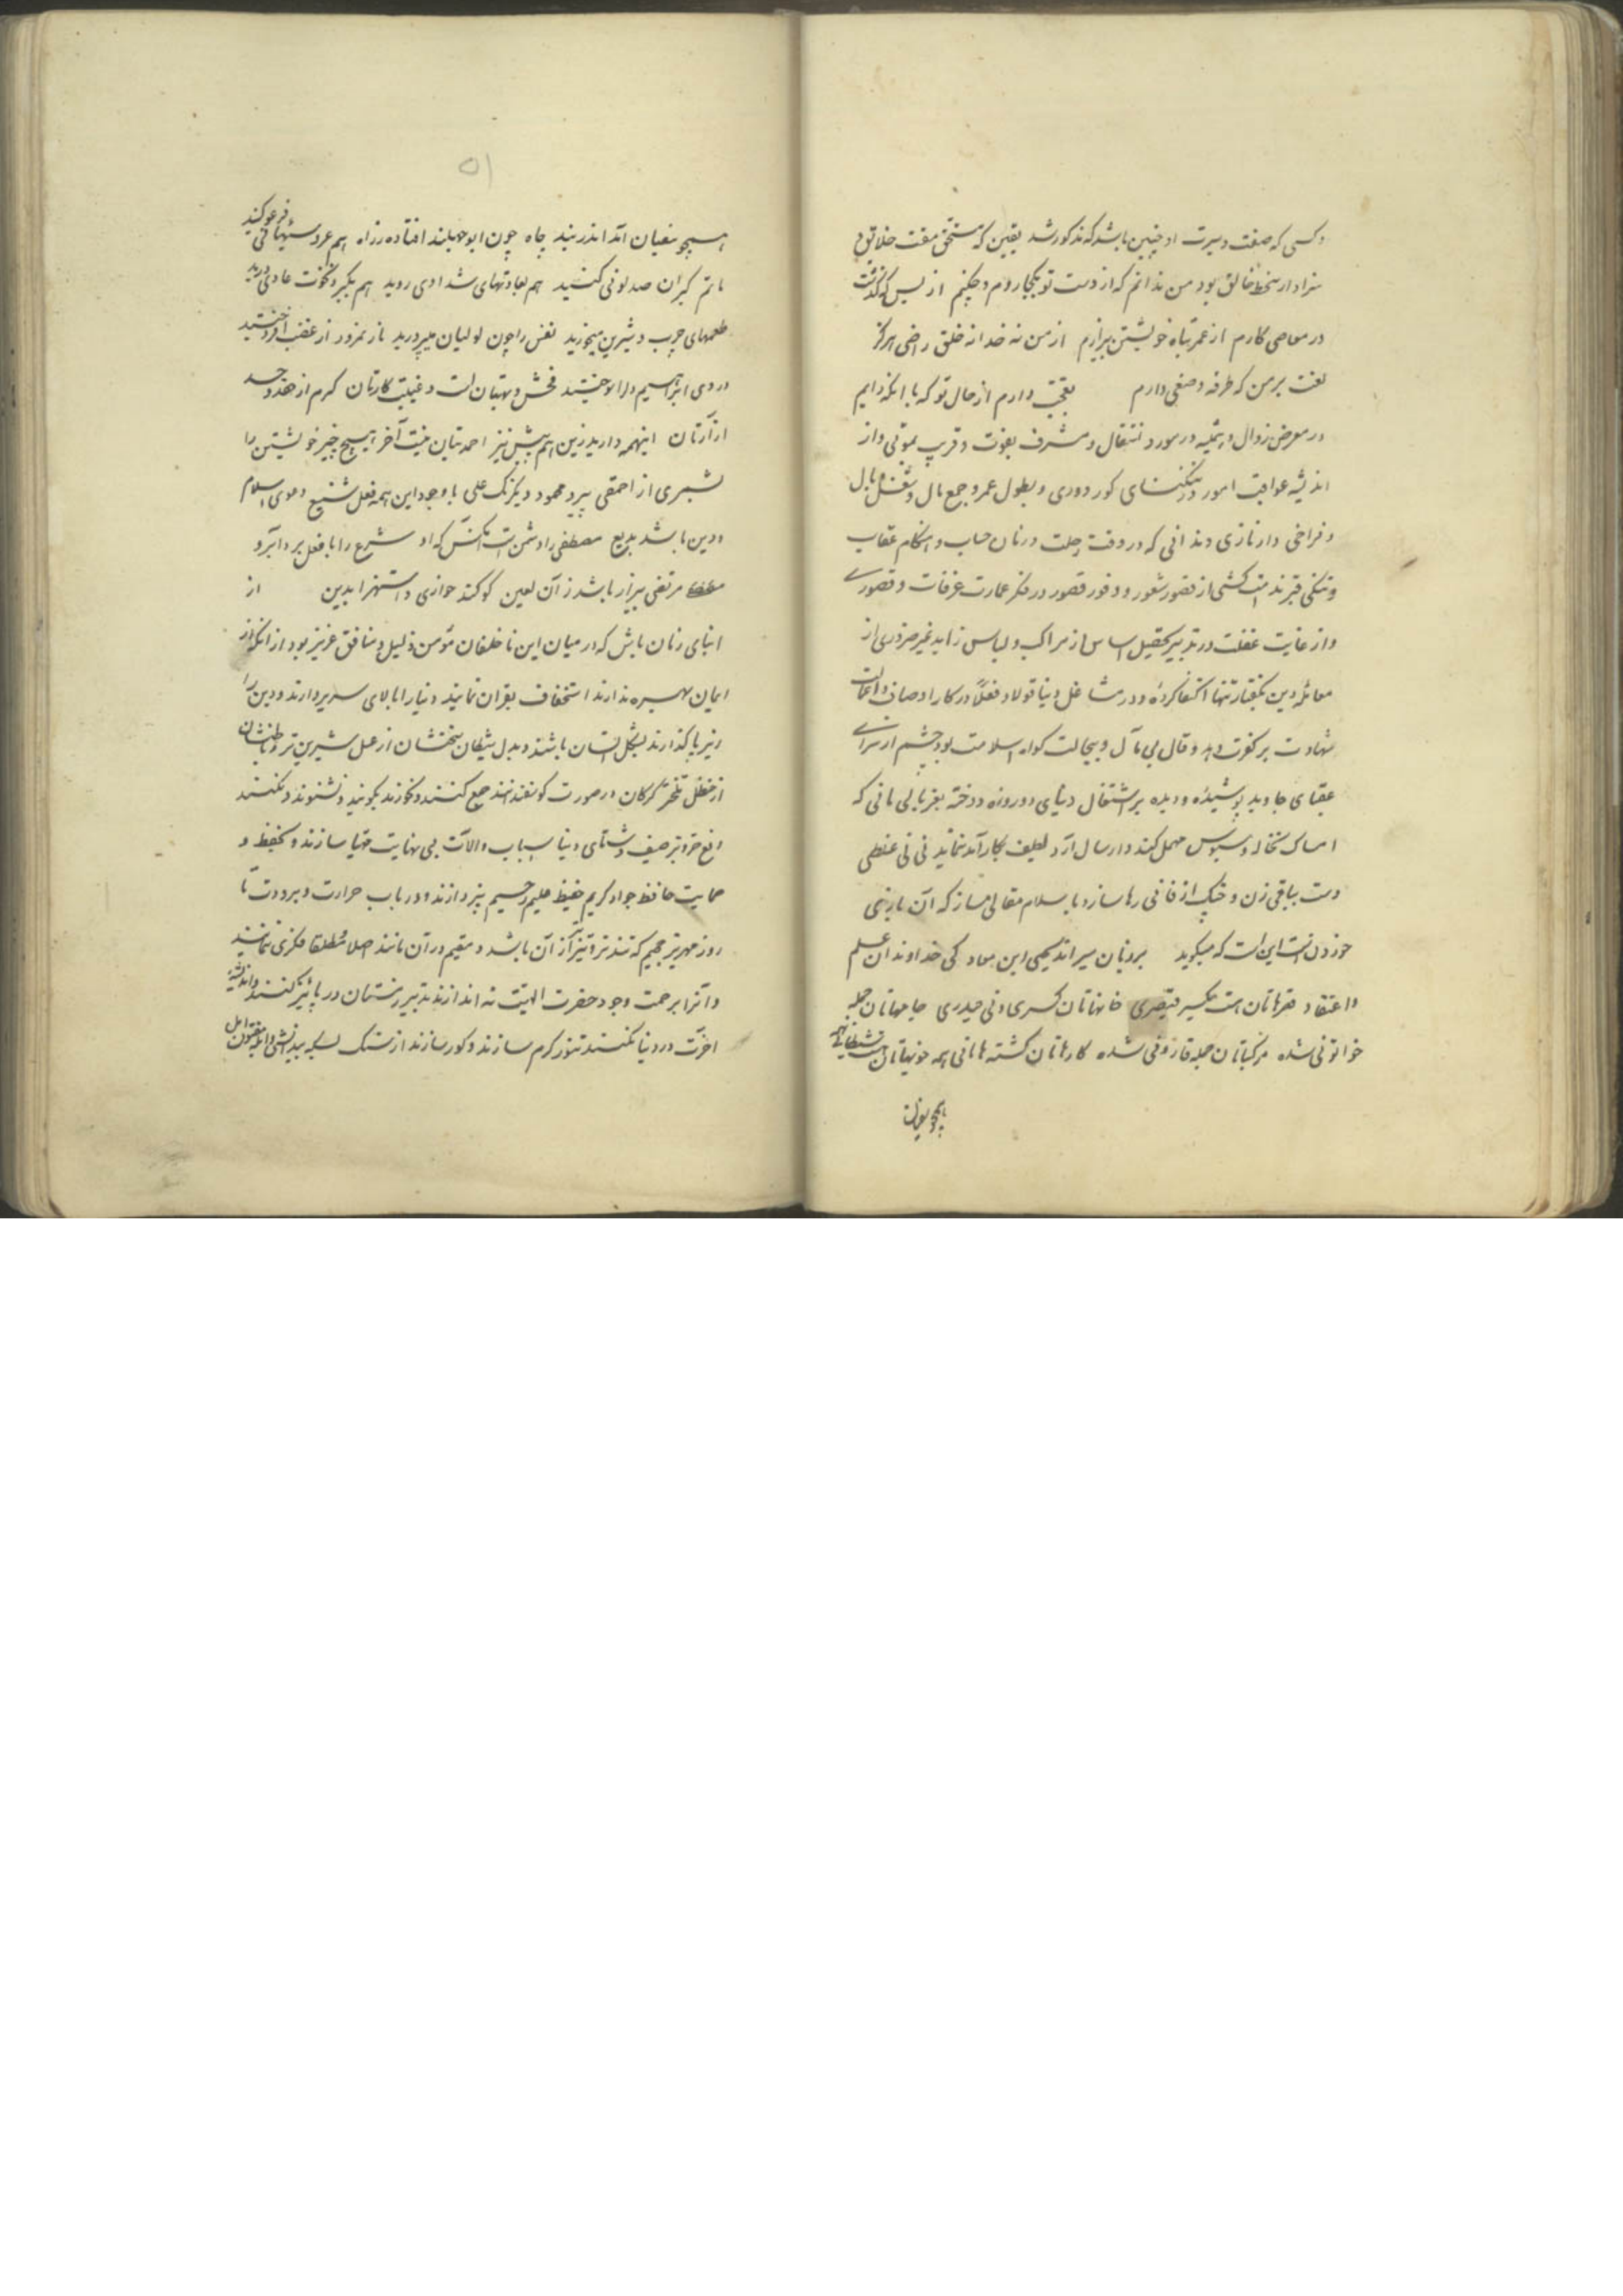 وکسی که صفت و سیرت او چنین باشد که مذکور شد یقین که مستحق مقت خلایق و
سزاوار سخط خالق بود من ندانم که از دست تو بکجا روم و چکنم از بس که گذشت
در معاصی کارم از عمر تباه خویشتن بیزارم از من نه خدا نه خلق راضی هرگز
لعنت بر من که طرفه وصفی دارم تعجب دارم از حال تو که با آنکه دایم
در معرض زوال و همیشه در مورد انتقال و مشرف بفوت و قریب بموتی و از
اندیشه عواقب امور و تنگنای کور دوری و بطول عمر و جمع مال و شغل بال
و فراخی دار نازی و ندانی که در وقت رحلت و زمان حساب و هنگام عقاب
و تنگی قبر ندامت کشی از قصور شعور و وفور قصور در فکر عمارت غرفات و قصوری
و از غایت غفلت در تدبیر تحصیل اساس از مراکب و لباس زاید غیر ضروری از
معاملهٔ دین بگفتار تنها اکتفا کردهٔ و در مشاغل دنیا قولا و فعلا در کار اوصاف و اعمالت
شهادت بر کفرت دهد و قال بی مآل و بیحالت گواه اسلامت بود چشم از سرای
عقبای جاوید پوشیدهٔ و دیده بر اشتغال دنیای دو روزه دوخته بغربالی مانی که
امساک نخاله و سبوس مهمل کند و ارسال آرد لطیف بکار آمد نماید نی نی غلطی
دست بباقی زن و خنک از فانی رها ساز و با سلام مقالی مساز که آن بازی
خوردن است این است که میگوید بر زبان میراند یحیی ابن معاد کی خداوندان علم
و اعتقاد قصرهاتان هست یکسر قیصری خانهاتان کسری و نی حیدری جامهاتان جمله
خواتونی شده مرکباتان جمله قارونی شده کارهاتان گشته هامانی همه خونهاتان شیطانی همه
همچو سفیان
۵۱
همچو سفیان آمد اندر بند چاه چون ابوجهلند افتاده ز راه هم عروسیهاتی فرعو کنید
ماتم گبران صد لونی کنید هم بعادتهای شدادی روید هم بکبر و نخوت عادی درید
طعمهای چرب و شیرین میخورید نفس را چون لولیان میپرورید باز نمرود از غضب افروختید
در وی ابراهیم دلرا سوختید فحش و بهتان است و غیبت کارتان گرم از حقد و حسد
ازارتان اینهمه دارید زین هم بیش نیز احمدیتان نیست آخر هیچ چیز خویشتن را
نشمری از احمقی پیرو محمود و یکرنک علی با وجود این همه فعل شنیع دعوی اسلام
و دین باشد بدیع مصطفی را دشمن است آنکس که او شرع را با فعل بد دارد آبرو
مرتضی بیزار باشد ز آن لعین کو کند خواری و استهزا بدین از
ابنای زمان باش که در میان این ناخلفان مؤمن ذلیل و منافق عزیز بود از آنکه از
ایمان بهره ندارند استخفاف بقران نمایند دنیا را بالای سر بردارند و دین را
زیر پا گذارند بشکل انسان باشند و بدل شیطان سخنشان از عسل شیرین تر و باطنشان
از حنظل تلختر گرگان در صورت گوسفندانند جمع کنند و نخورند بگویند و نشنوند و نکنند
رفع حر و برد صیف و شتای دنیا اسباب و الات بی نهایت مهیا سازند و بحفظ و
حمایت حافظ جواد کریم حفیظ حلیم رحیم نپردازند و در باب حرارت و برودت تا
روز مهریز جحیم که تند تر و تیز تر از آن باشد و مقیم در آن مانند اصلا و مطلقا فکری ننمایند
و آنرا برحمت وجود حضرت الهیت نه اندازند تدبیر زمستان در پائیز کنند و اندیشهٔ
اخرت در دنیا نکنند تنور گرم سازند و کور سازند از سنک